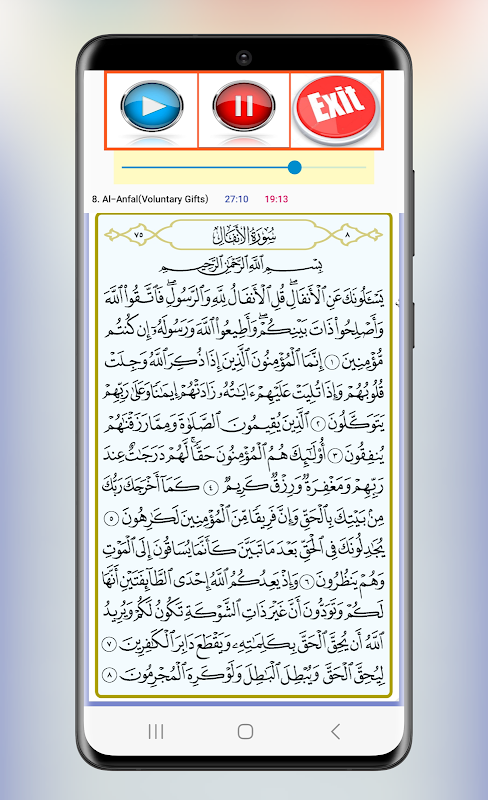 Exit
8. Al-Anfal(Voluntary Gifts) 27:10 19:13
٨ سُورَةُ الْأَنفَالِ ٧٥
بِسْمِ اللَّهِ الرَّحْمَٰنِ الرَّحِيمِ
يَسْـَٔلُونَكَ عَنِ الْأَنفَالِ ۖ قُلِ الْأَنفَالُ لِلَّهِ وَالرَّسُولِ ۖ فَاتَّقُوا اللَّهَ
وَأَصْلِحُوا ذَاتَ بَيْنِكُمْ ۖ وَأَطِيعُوا اللَّهَ وَرَسُولَهُ إِن كُنتُم
مُّؤْمِنِينَ ١ إِنَّمَا الْمُؤْمِنُونَ الَّذِينَ إِذَا ذُكِرَ اللَّهُ وَجِلَتْ
قُلُوبُهُمْ وَإِذَا تُلِيَتْ عَلَيْهِمْ ءَايَاتُهُ زَادَتْهُمْ إِيمَانًا وَعَلَىٰ رَبِّهِمْ
يَتَوَكَّلُونَ ٢ الَّذِينَ يُقِيمُونَ الصَّلَوٰةَ وَمِمَّا رَزَقْنَاهُمْ
يُنفِقُونَ ٣ أُولَٰئِكَ هُمُ الْمُؤْمِنُونَ حَقًّا ۚ لَّهُمْ دَرَجَاتٌ عِندَ
رَبِّهِمْ وَمَغْفِرَةٌ وَرِزْقٌ كَرِيمٌ ٤ كَمَا أَخْرَجَكَ رَبُّكَ
مِن بَيْتِكَ بِالْحَقِّ وَإِنَّ فَرِيقًا مِّنَ الْمُؤْمِنِينَ لَكَارِهُونَ ٥
يُجَادِلُونَكَ فِي الْحَقِّ بَعْدَ مَا تَبَيَّنَ كَأَنَّمَا يُسَاقُونَ إِلَى الْمَوْتِ
وَهُمْ يَنظُرُونَ ٦ وَإِذْ يَعِدُكُمُ اللَّهُ إِحْدَى الطَّائِفَتَيْنِ أَنَّهَا
لَكُمْ وَتَوَدُّونَ أَنَّ غَيْرَ ذَاتِ الشَّوْكَةِ تَكُونُ لَكُمْ وَيُرِيدُ
اللَّهُ أَن يُحِقَّ الْحَقَّ بِكَلِمَاتِهِ وَيَقْطَعَ دَابِرَ الْكَافِرِينَ ٧
لِيُحِقَّ الْحَقَّ وَيُبْطِلَ الْبَاطِلَ وَلَوْ كَرِهَ الْمُجْرِمُونَ ٨